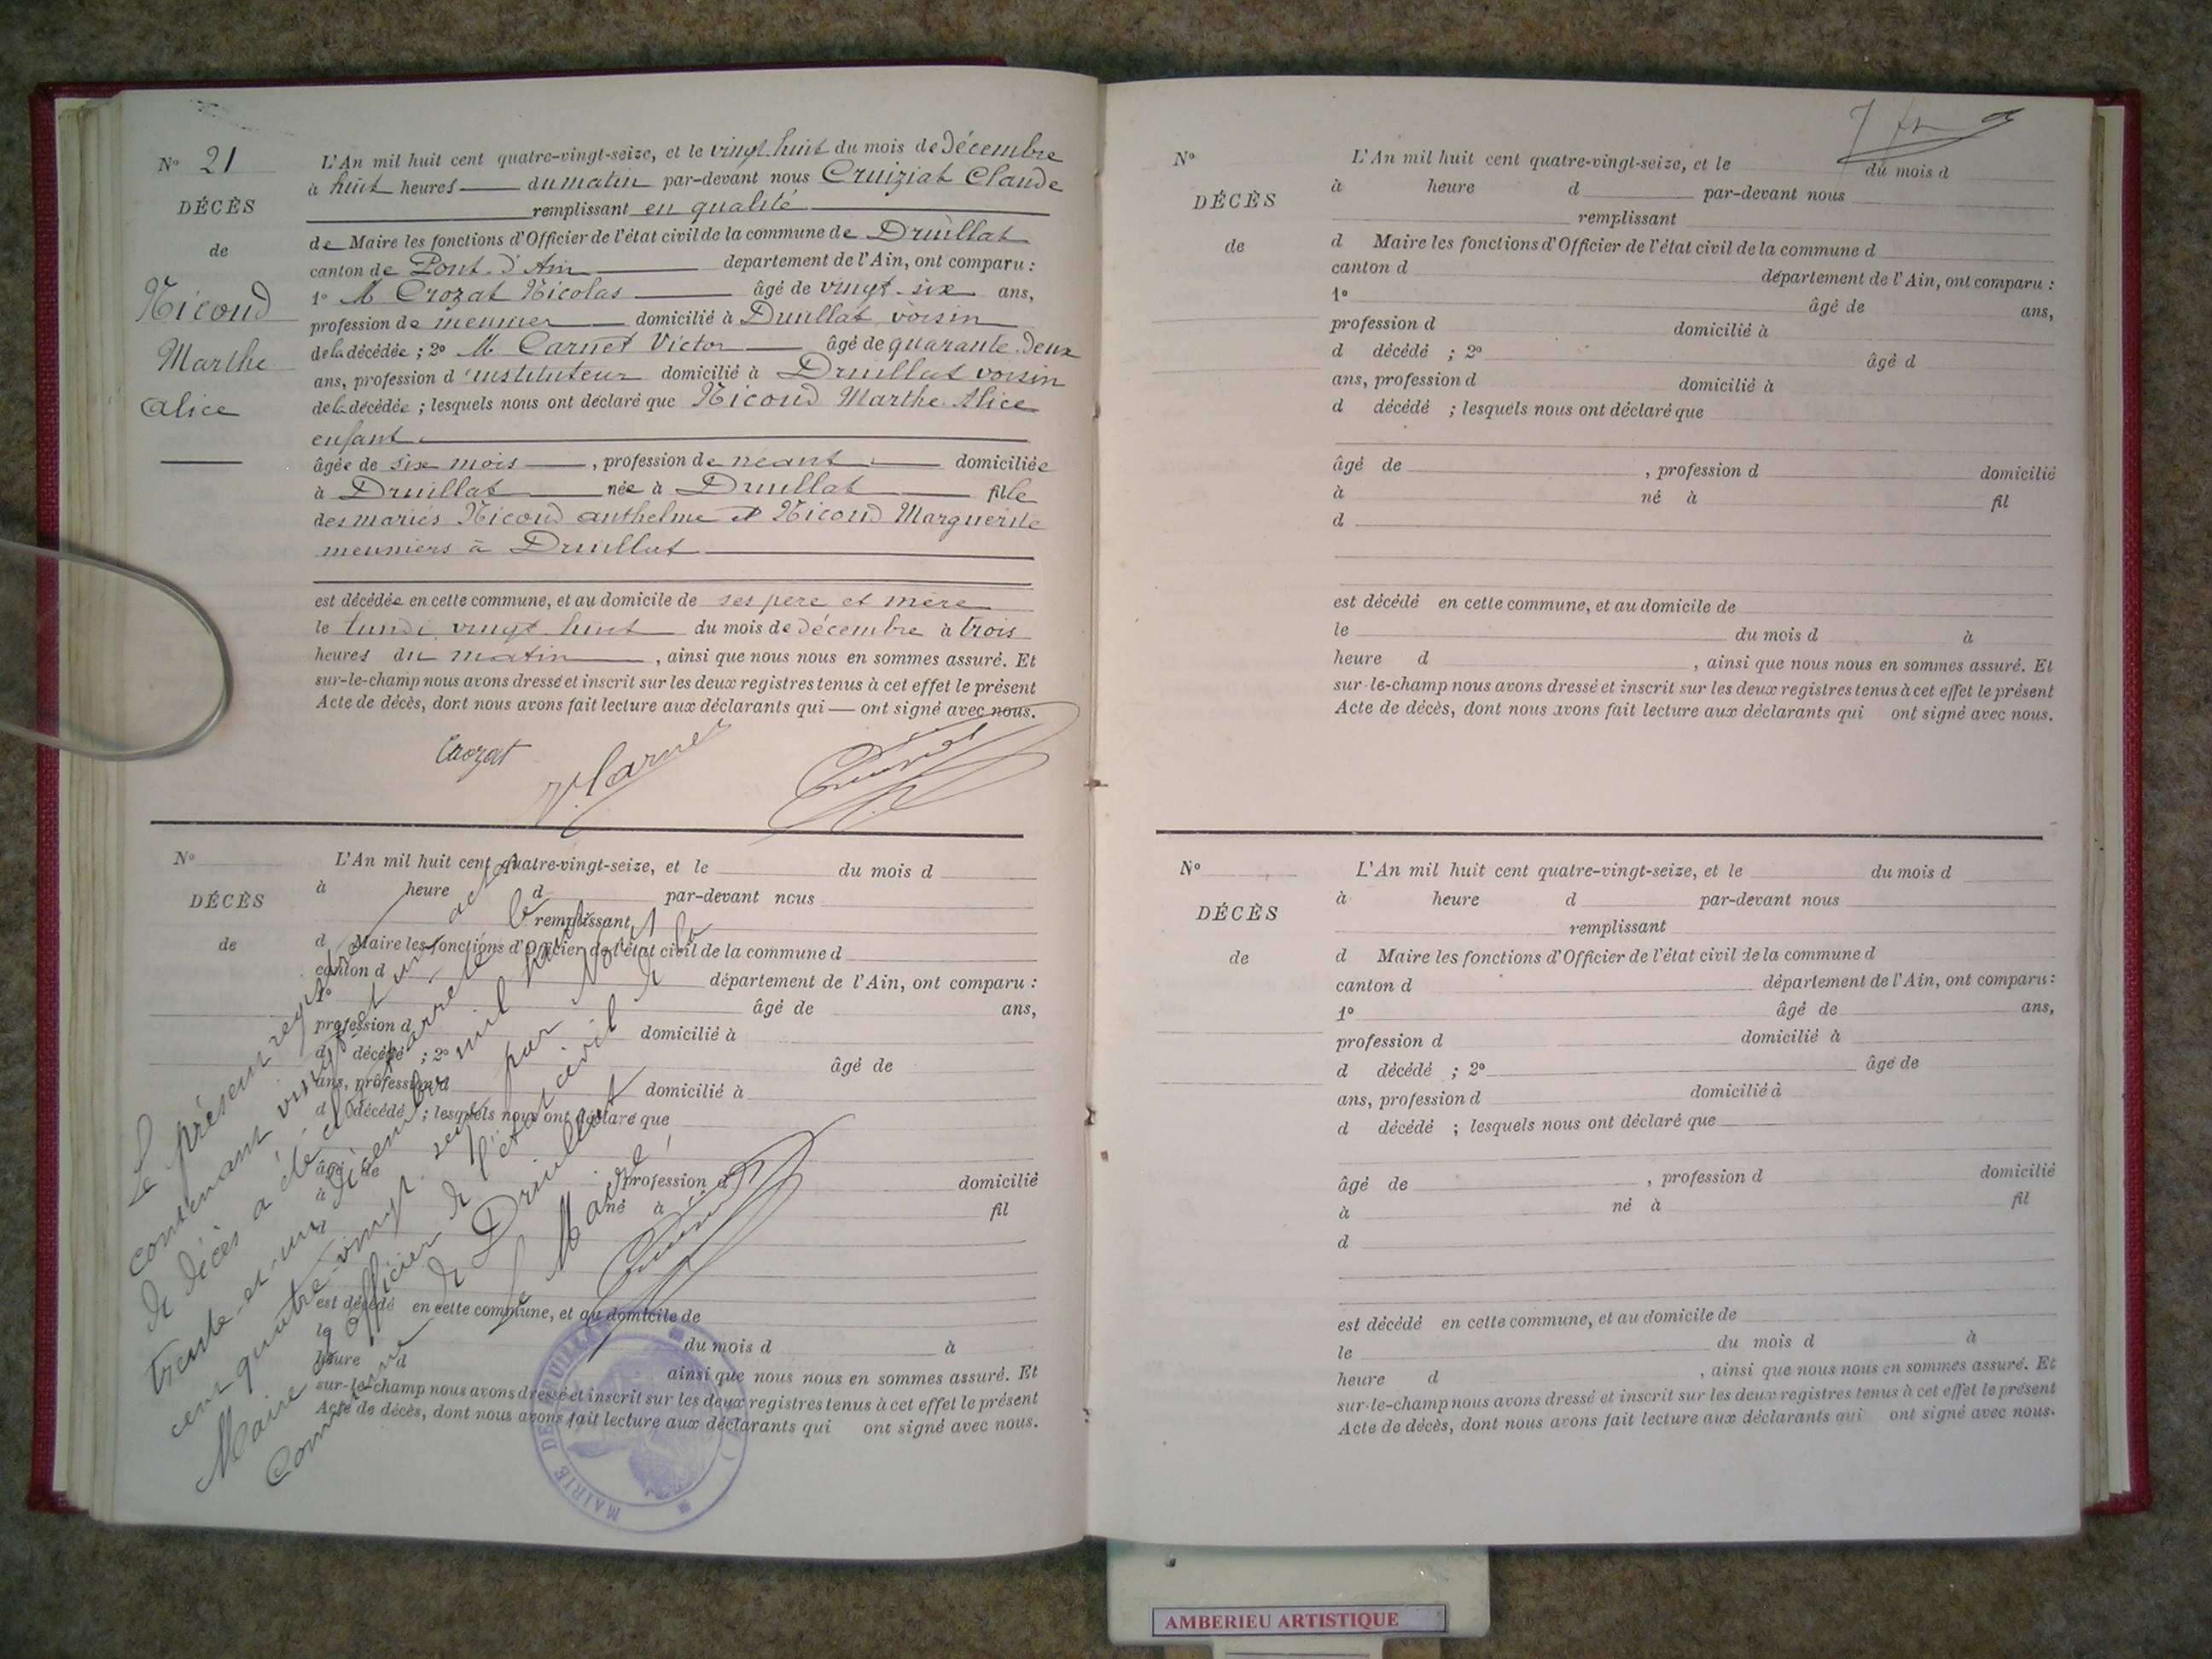 N° 21
DÉCÈS
de
Nicoud
Marthe
Alice
L'An mil huit cent quatre-vingt-seize, et le vingt-huit du mois de Décembre
à huit heures du matin par-devant nous Cruiziat Claude
remplissant en qualité
de Maire les fonctions d'Officier de l'état civil de la commune de Druillat
canton de Pont-d'Ain département de l'Ain, ont comparu :
1° M. Crozat Nicolas âgé de vingt-six ans,
profession de meunier domicilié à Druillat, voisin
de la décédée ; 2° M. Carnet Victor âgé de quarante-deux
ans, profession d'instituteur domicilié à Druillat voisin
de la décédée ; lesquels nous ont déclaré que Nicoud Marthe Alice
enfant
âgée de six mois, profession de néant domiciliée
à Druillat née à Druillat fille
des mariés Nicoud Anthelme et Nicoud Marguerite
meuniers à Druillat
est décédée en cette commune, et au domicile de ses père et mère
le lundi vingt-huit du mois de décembre à trois
heures du matin, ainsi que nous nous en sommes assuré. Et
sur-le-champ nous avons dressé et inscrit sur les deux registres tenus à cet effet le présent
Acte de décès, dont nous avons fait lecture aux déclarants qui — ont signé avec nous.
Crozat
V. Carnet
N°
DÉCÈS
de
L'An mil huit cent quatre-vingt-seize, et le du mois d
à heure d par-devant nous
remplissant
d Maire les fonctions d'Officier de l'état civil de la commune d
canton d
département de l'Ain, ont comparu :
1° âgé de ans,
profession d domicilié à
d décédé ; 2° âgé de
ans, profession d domicilié à
d décédé ; lesquels nous ont déclaré que
âgé de , profession d domicilié
à né à fil
d
est décédé en cette commune, et au domicile de
le du mois d à
heure d ainsi que nous nous en sommes assuré. Et
sur-le-champ nous avons dressé et inscrit sur les deux registres tenus à cet effet le présent
Acte de décès, dont nous avons fait lecture aux déclarants qui ont signé avec nous.
Le présent registre
contenant vingt et un actes
de décès a été clos et arrêté le
trente-et-un décembre mil huit
cent quatre-vingt-seize par Nous
Maire Officier de l'état civil de la
Commune de Druillat
Le Maire,
MAIRIE DE DRUILLAT
N°
DÉCÈS
de
L'An mil huit cent quatre-vingt-seize, et le du mois d
à heure d par-devant nous
remplissant
d Maire les fonctions d'Officier de l'état civil de la commune d
canton d département de l'Ain, ont comparu :
1° âgé de ans,
profession d domicilié à
d décédé ; 2° âgé d
ans, profession d domicilié à
d décédé ; lesquels nous ont déclaré que
âgé de , profession d domicilié
à né à fil
d
est décédé en cette commune, et au domicile de
le du mois d à
heure d , ainsi que nous nous en sommes assuré. Et
sur-le-champ nous avons dressé et inscrit sur les deux registres tenus à cet effet le présent
Acte de décès, dont nous avons fait lecture aux déclarants qui ont signé avec nous.
N°
DÉCÈS
de
L'An mil huit cent quatre-vingt-seize, et le du mois d
à heure d par-devant nous
remplissant
d Maire les fonctions d'Officier de l'état civil de la commune d
canton d département de l'Ain, ont comparu :
1° âgé de ans,
profession d domicilié à
d décédé ; 2° âgé de
ans, profession d domicilié à
d décédé ; lesquels nous ont déclaré que
âgé de , profession d domicilié
à né à fil
d
est décédé en cette commune, et au domicile de
le du mois d à
heure d , ainsi que nous nous en sommes assuré. Et
sur-le-champ nous avons dressé et inscrit sur les deux registres tenus à cet effet le présent
Acte de décès, dont nous avons fait lecture aux déclarants qui ont signé avec nous.
AMBERIEU ARTISTIQUE